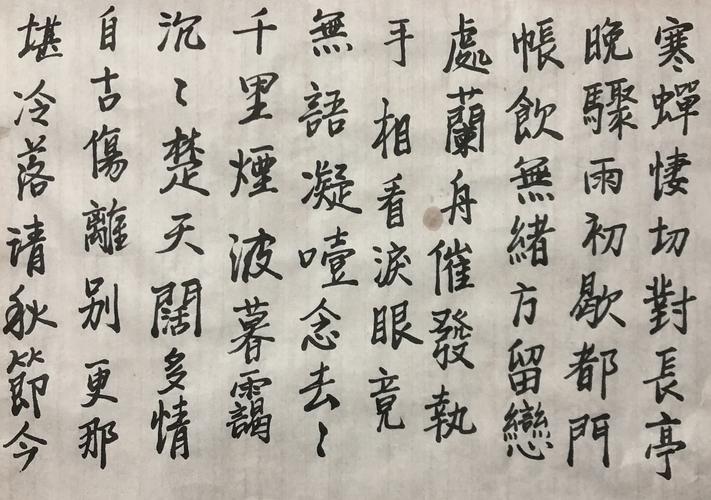 寒蟬悽切對長亭
晚驟雨初歇都門
帳飲無緒方留戀
處蘭舟催發執
手相看淚眼竟
無語凝噎念去〻
千里煙波暮靄
沉〻楚天闊多情
自古傷離別更那
堪冷落请秋節今